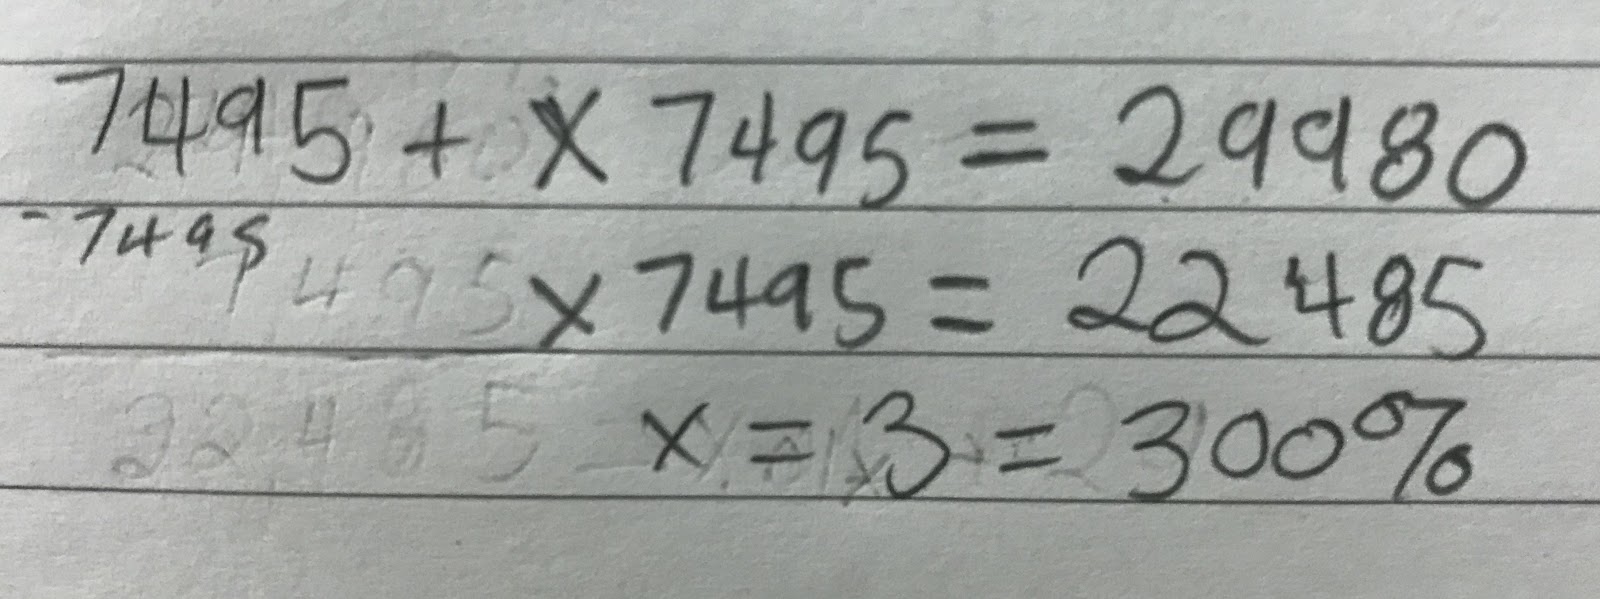 7495 + x 7495 = 29980
-7495
x 7495 = 22485
x = 3 = 300%